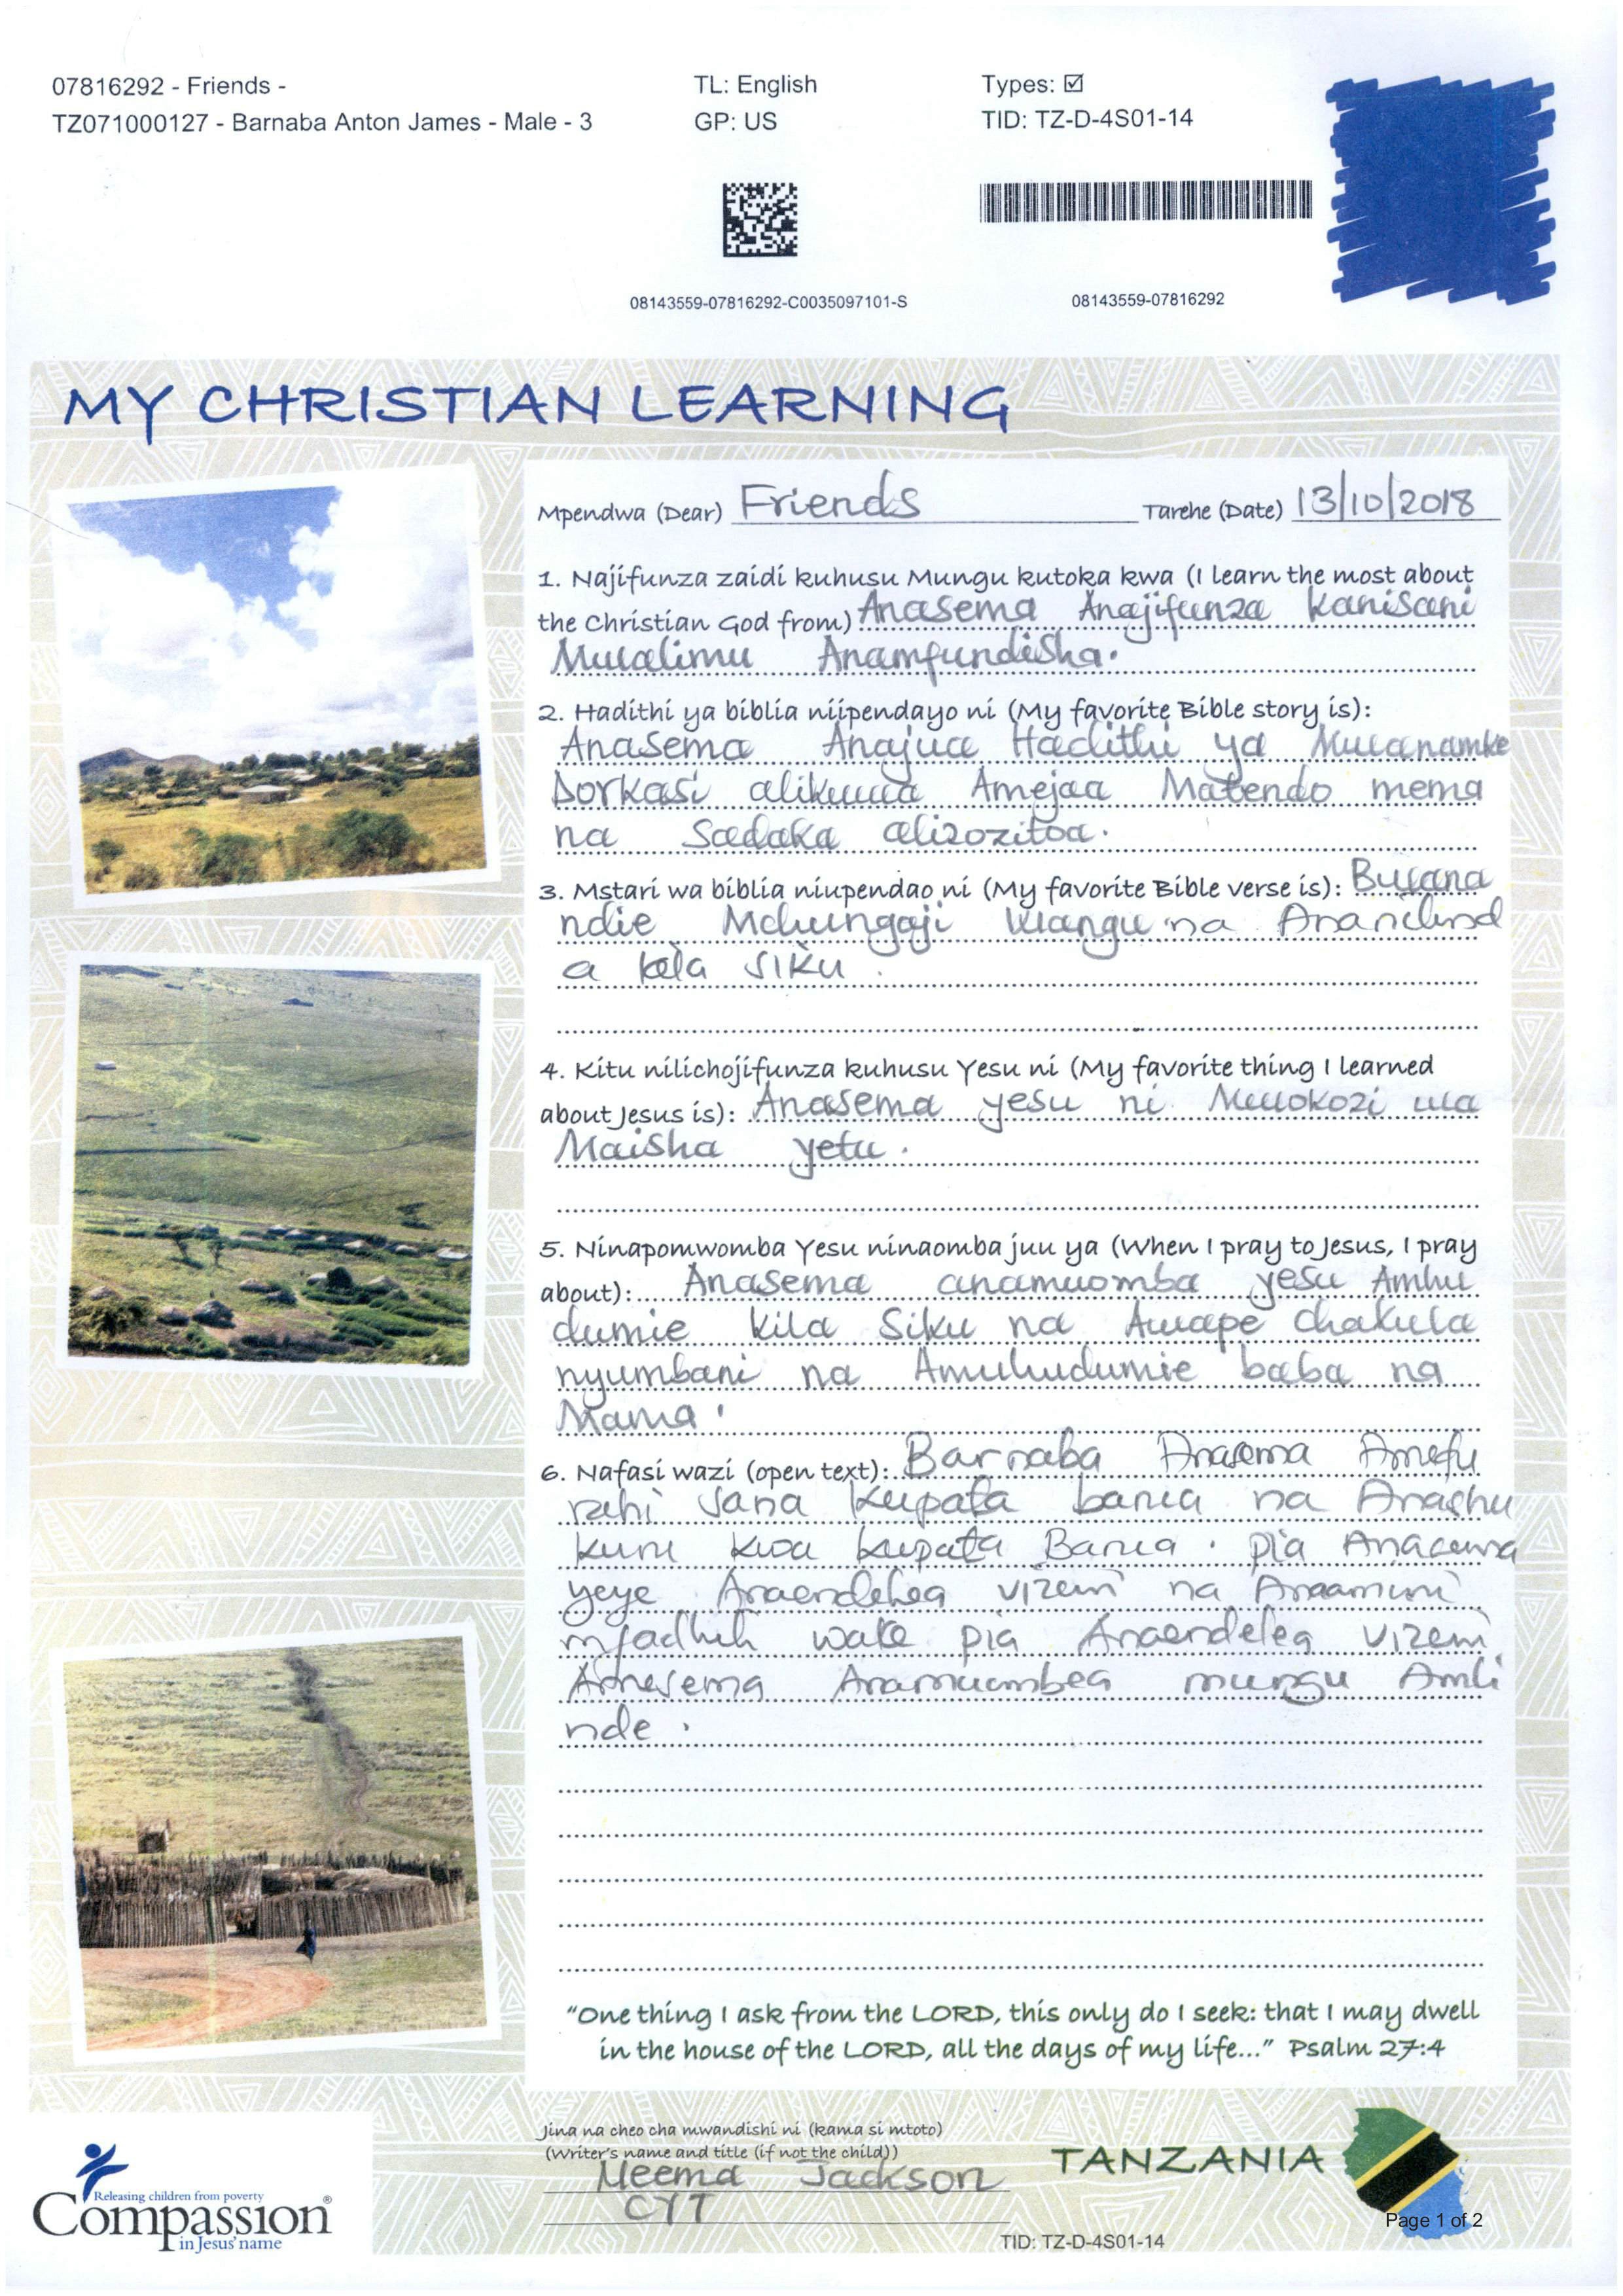 07816292 - Friends -
TZ071000127 - Barnaba Anton James - Male - 3
TL: English
GP: US
Types: ☑
TID: TZ-D-4S01-14
08143559-07816292-C0035097101-S
08143559-07816292
MY CHRISTIAN LEARNING
Mpendwa (Dear) Friends Tarehe (Date) 13/10/2018
1. Najifunza zaidi kuhusu Mungu kutoka kwa (I learn the most about
the Christian God from) Anasema Anajifunza Kanisani
Mwalimu Anamfundisha.
2. Hadithi ya biblia niipendayo ni (My favorite Bible story is):
Anasema Anajua Hadithi ya Mwanamke
Dorkasi alikuwa Amejaa Matendo mema
na Sadaka alizozitoa.
3. Mstari wa biblia niupendao ni (My favorite Bible verse is): Bwana
ndie Mchungaji Wangu na Ananilind
a kila siku.
4. Kitu nilichojifunza kuhusu Yesu ni (My favorite thing I learned
about Jesus is): Anasema yesu ni Mwokozi wa
Maisha yetu.
5. Ninapomwomba Yesu ninaomba juu ya (When I pray to Jesus, I pray
about): Anasema anamwomba yesu Amhu
dumie Kila Siku na Awape chakula
nyumbani na Amuhudumie baba na
Mama.
6. Nafasi wazi (open text): Barnaba Anasema Amefu
rahi sana kupata barua na Anashu
kuru kwa kupata Barua. pia Anasema
yeye Anaendelea vizuri na Anaamini
mfadhili wake pia Anaendelea vizuri
Amesema Anamuombea mungu Amli
nde.
"One thing I ask from the LORD, this only do I seek: that I may dwell
in the house of the LORD, all the days of my life..." Psalm 27:4
Jina na cheo cha mwandishi ni (kama si mtoto)
(Writer's name and title (if not the child))
Neema Jackson
CYT
TANZANIA
Releasing children from poverty
Compassion®
in Jesus' name
Page 1 of 2
TID: TZ-D-4S01-14